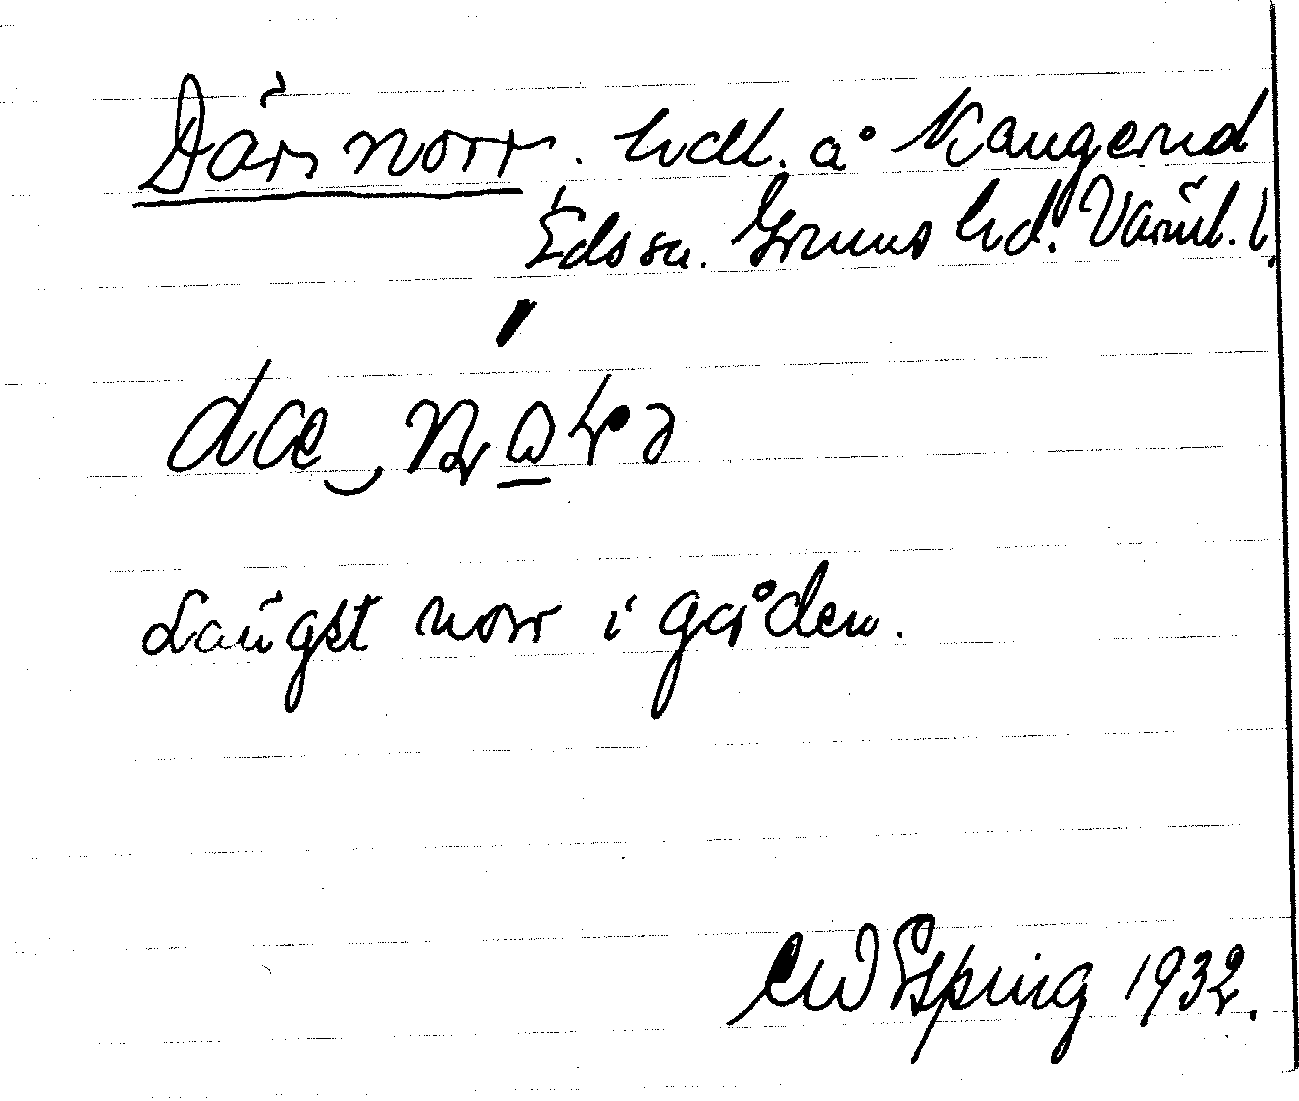 Där norr. hdl. å Kangerud
Eds sn. Grums hd. Värml. l.
Längst norr i gården.
EW Esping 1932.